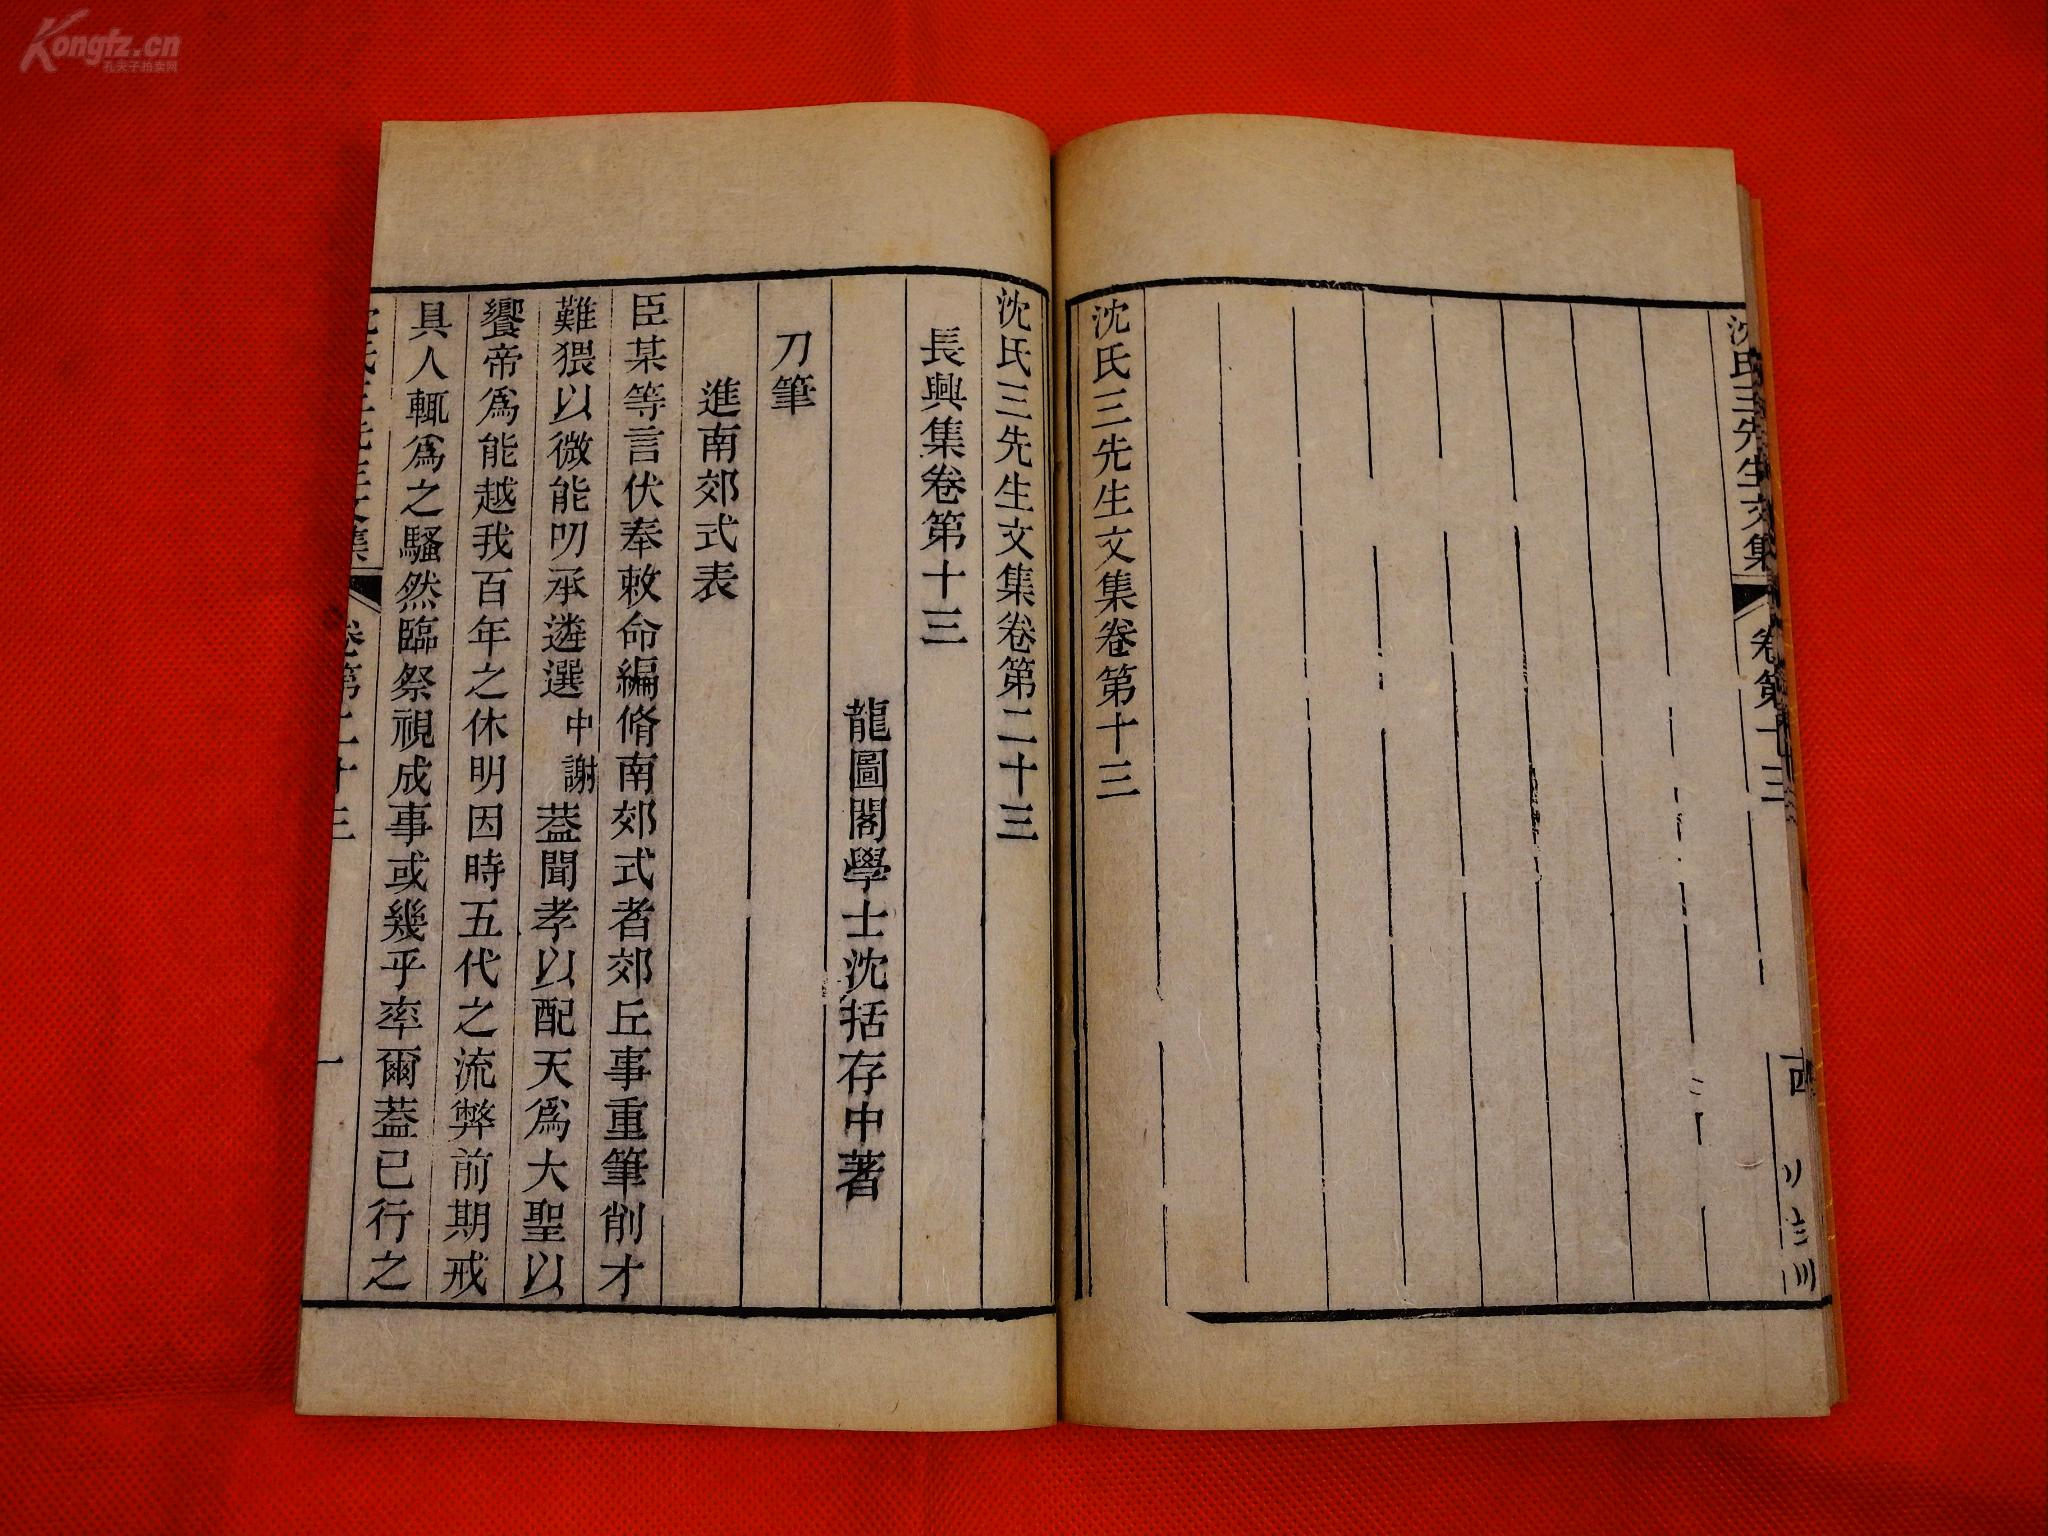 Kongfz.cn
孔夫子拍卖网
沈氏三先生文集
卷第十三
沈氏三先生文集卷第十三
沈氏三先生文集卷第二十三
長興集卷第十三
龍圖閣學士沈括存中著
刀筆
進南郊式表
臣某等言伏奉敕命編脩南郊式者郊丘事重筆削才
難猥以微能叨承遴選中謝葢聞孝以配天爲大聖以
饗帝爲能越我百年之休明因時五代之流弊前期戒
具人輒爲之騷然臨祭視成事或幾乎率爾葢已行之
卷第二十三
一